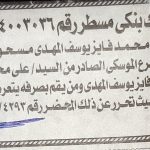 ك بنكى مسطر رقم ٤٠٠٣٠٣٦
محمد فايز يوسف المهدى مسحو
رع الموسكى الصادر من السيد/ على مح
فايز يوسف المهدى ومن يقم بصرفه يتعر
سيت تحرر عن ذلك المحضر رقم ٤٣٩٣/